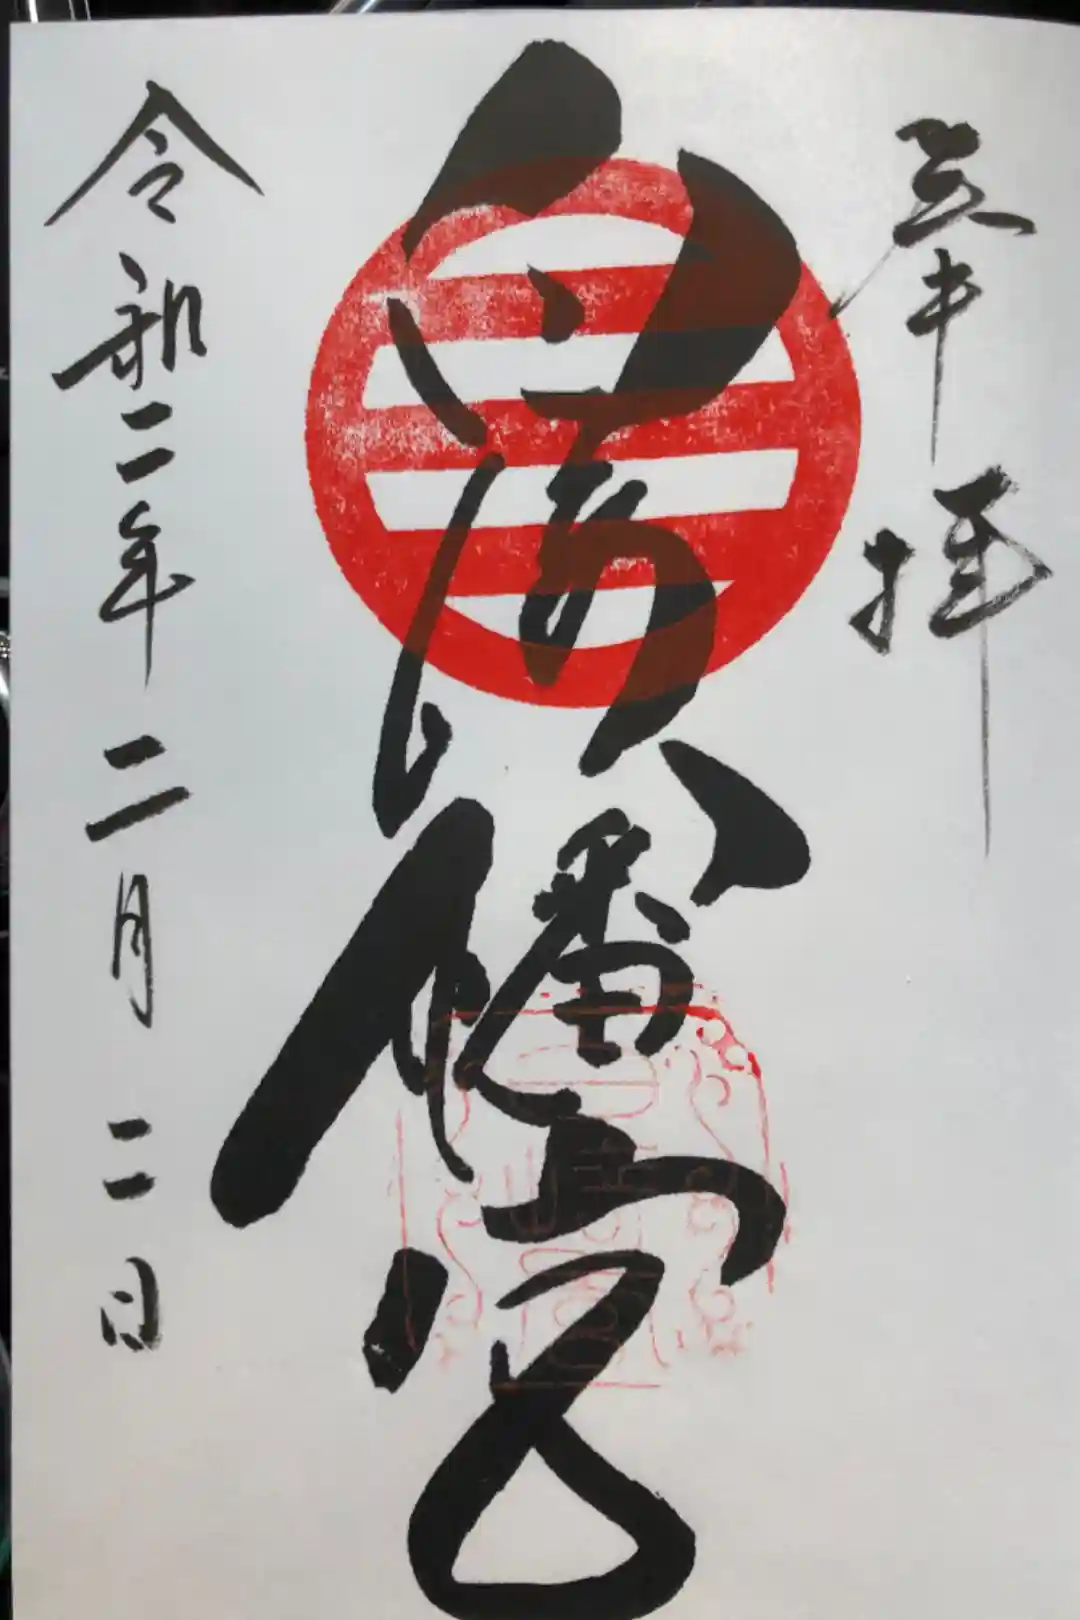 奉拝
八幡宮
令和二年二月二日